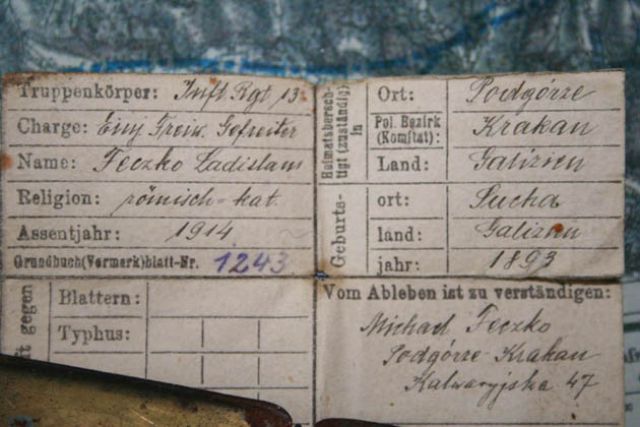 Truppenkörper: Inft Rgt 13
Charge: Einj Freiw. Gefreiter
Name: Feczko Ladislaus
Religion: römisch-kat.
Assentjahr: 1914
Grundbuch(Vormerk)blatt-Nr. 1243
Heimatsberech-
tigt (zuständig)
in
Ort: Podgórze
Pol. Bezirk
(Komitat): Krakau
Land: Galizien
Geburts-
ort: Sucha
land: Galizien
jahr: 1893
gegen
Blattern:
Typhus:
Vom Ableben ist zu verständigen:
Michael Feczko
Podgórze Krakau
Kalwaryjska 47